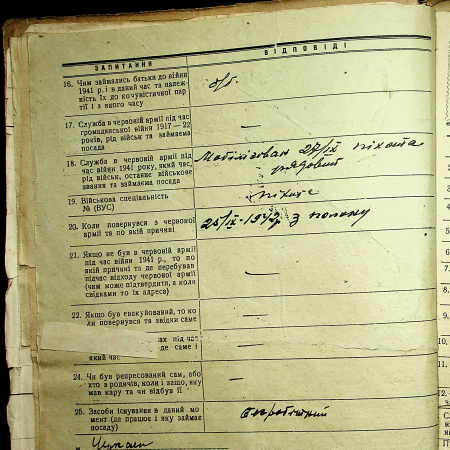 ЗАПИТАННЯ
ВІДПОВІДІ
16. Чим займались батьки до війни
1941 р. і в даний час та належ-
ність їх до комуністичної пар
тії і з якого часу
б/п.
17. Служба в червоній армії під час
громадянської війни 1917 — 22
років, рід військ та займаєма
посада
—
18. Служба в червоній армії під
час війни 1941 року, який час,
рід військ, останнє військове
звання та займаєма посада
Мобілізован 27/IX піхота
рядовий
19. Військова спеціальність
№ (ВУС)
піхота
20. Коли повернувся з червоної
армії та по якій причині
25/IX-1942р з полону
21. Якщо не був в червоній армії
під час війни 1941 р., то по
якій причині та де перебував
підчас відходу червоної армії
(чим може підтвердити, а коли
свідками то їх адреса)
—
22. Якщо був евакуйований, то ко
ли повернувся та звідки саме
—
ах під час
де саме і
який час
—
24. Чи був репресований сам, або
хто з родичів, коли і защо, яку
мав кару та чи відбув її
—
25. Засоби існування в даний мо
мент (де працює і яку займає
посаду)
безробітний